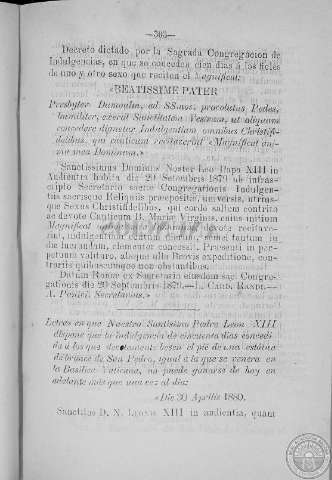 —303—
Decreto dictado por la Sagrada Congregacion de
Indulgencias, en que se conceden cien dias á los fieles
de uno y otro sexo que reciten el Magnificat:
«BEATISSIME PATER
Presbyter Damoulin, ad SSmos. provolutus Pedes,
humiliter exorat Sanctitatem Vestram, ut aliquam
concedere dignetur Indulgentiam omnibus Christifi-
delibus, qui canticum recitaverint «Magnificat ani-
ma mea Dominum.»
Sanctissimus Dominus Noster Leo Papa XIII in
Audientia habita die 20 Setembris 1879 ab infras-
cripto Secretario sacræ Congregationis Indulgen-
tiis sacrisque Reliquiis præposite, universis, utrius-
que Sexus Christifidelibus, qui corde saltem contrito
ac devote Canticum B. Mariæ Virginis, cujus initium
Magnificat devote recitave-
rint, indulgentiam centum dierum, semel tantum in
die lucrandam, clementer concessit. Præsenti in per-
petuum valituro, absque ulla Brevis expeditione, con-
trariis quibuscumque non obstantibus.
Datum Romæ ex Secretaria ejusdem sac. Congre-
gationis die 20 Septembris 1879.—L. Card. Rande.—
A. Panici. Secretarius.»
Letras en que Nuestro Santísimo Padre Leon XIII
dispone que la indulgencia de cincuenta dias concedi-
da á los que devotamente besen el pié de una estátua
de bronce de San Pedro, igual a la que se venera en
la Basílica Vaticana, no puede ganarse de hoy en
adelante más que una vez al dia:
«Die 30 Aprilis 1880.
Sanctitas D. N. Leonis XIII in audientia, quam